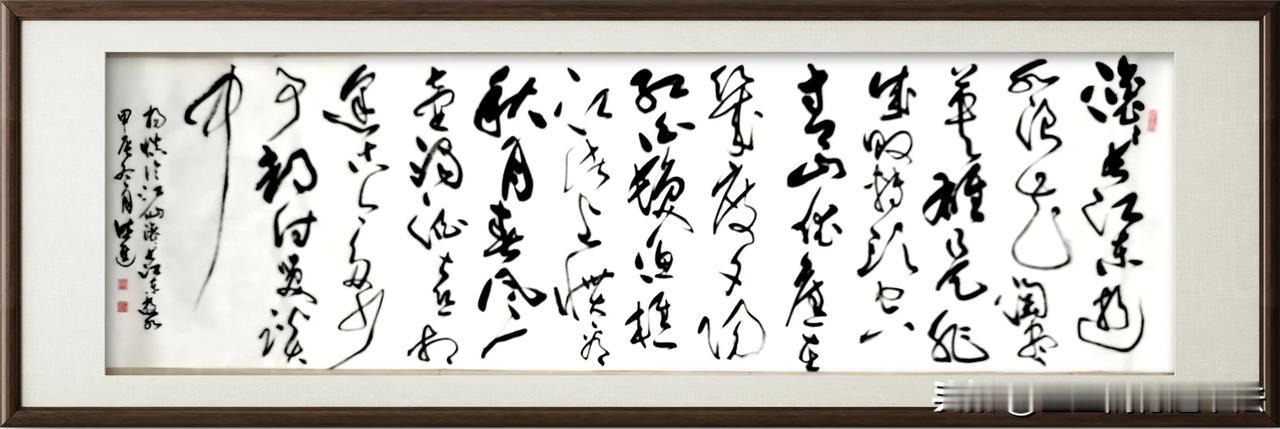 滚滚长江东逝
水浪花淘尽
英雄是非
成败转头空
青山依旧在
几度夕阳
红白发渔樵
江渚上惯看
秋月春风一
壶浊酒喜相
逢古今多少
事都付笑谈
中
杨慎临江仙滚滚长江东逝水
甲辰冬月